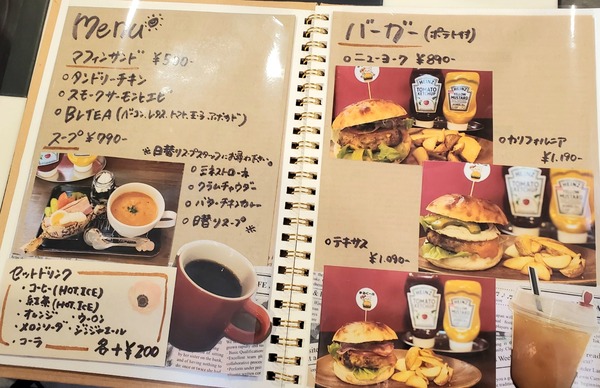 menu
マフィンサンド ¥500-
○タンドリーチキン
○スモークサーモンとエビ
○BLTEA(ベーコン,レタス,トマト,玉子,アボカド)
スープ ¥790-
※日替りスープスタッフにお尋ね下さい。
○ミネストローネ
○クラムチャウダー
○バターチキンカレー
○日替りスープ※
セットドリンク
・コーヒー(HOT,ICE)
・紅茶(HOT,ICE)
・オレンジ ・ウーロン
・メロンソーダ・ジンジャエール
・コーラ 各+¥200
バーガー(ポテト付)
○ニューヨーク ¥890-
HEINZ
TOMATO
KETCHUP
HEINZ
YELLOW
MUSTARD
○カリフォルニア
¥1.190-
HEINZ
TOMATO
KETCHUP
HEINZ
YELLOW
MUSTARD
○テキサス
¥1.090-
HEINZ
TOMATO
KETCHUP
HEINZ
MUSTARD